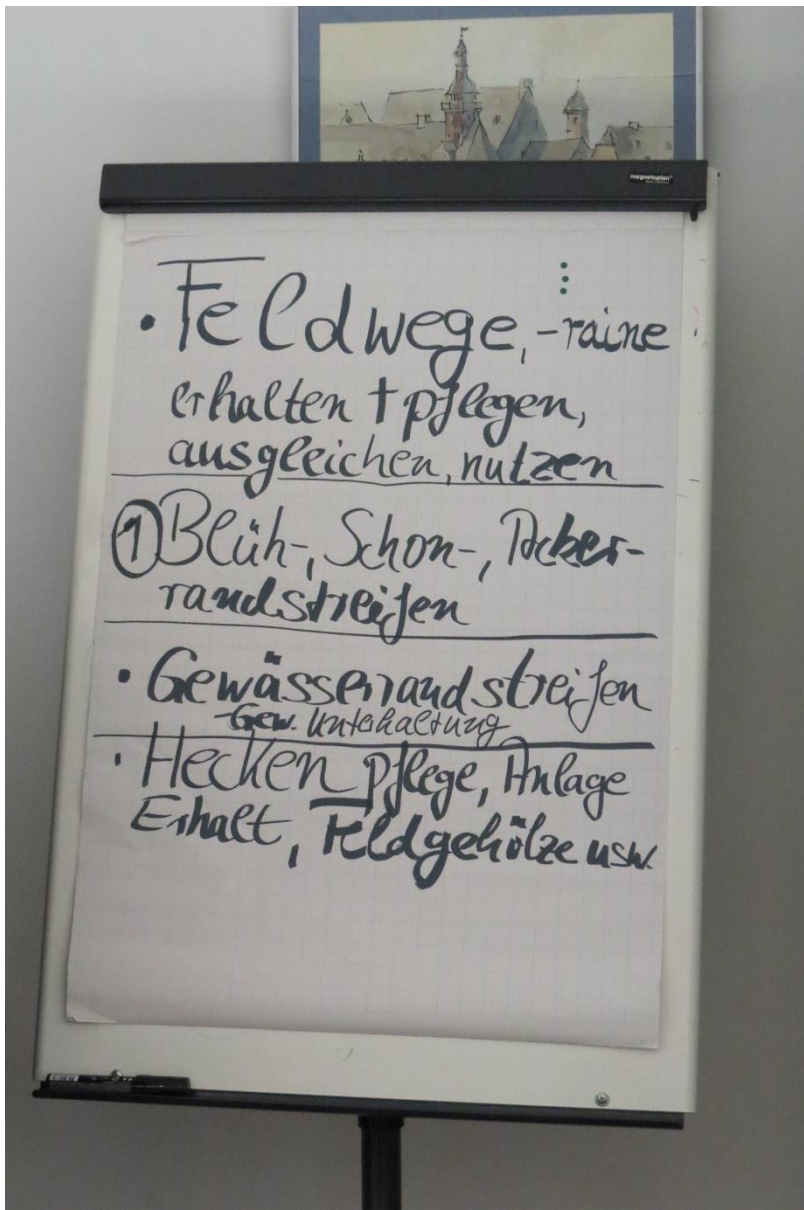 magnetoplan
• Feldwege, -raine
erhalten + pflegen,
ausgleichen, nutzen
① Blüh-, Schon-, Acker-
randstreifen
• Gewässerrandstreifen
-Gew. Unterhaltung
• Hecken pflege, Anlage
Erhalt, Feldgehölze usw.